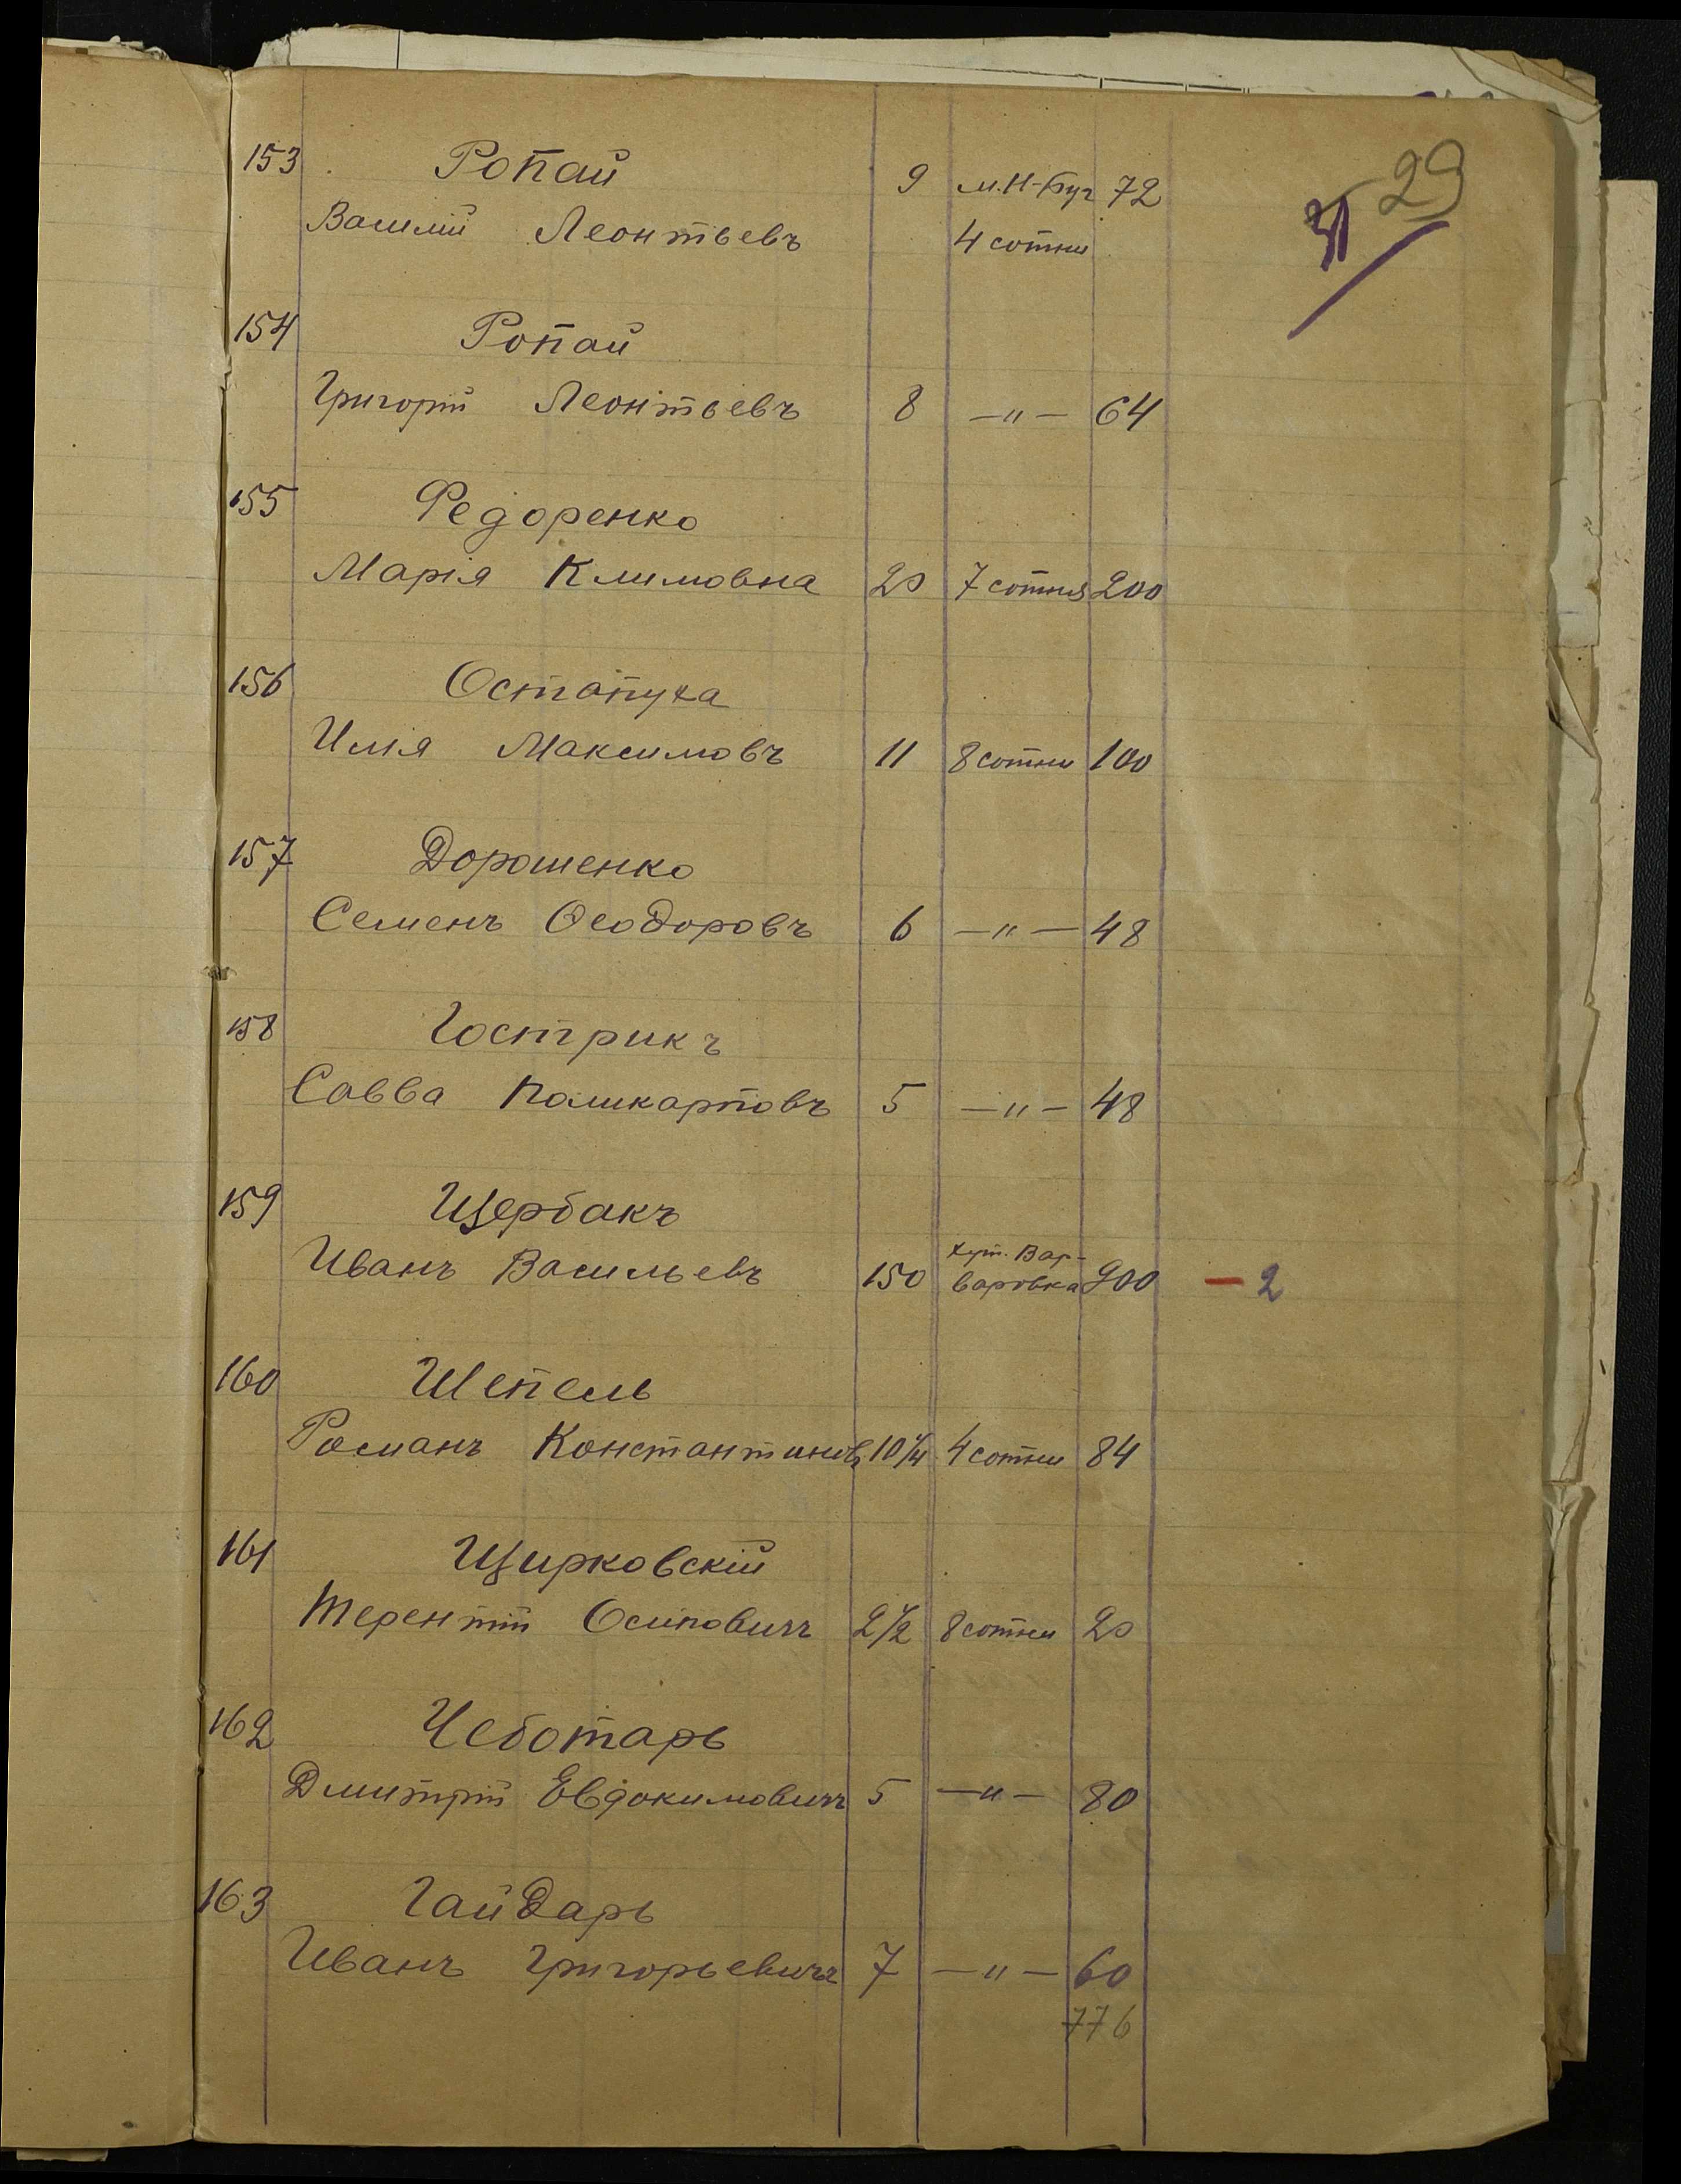 29
31
153 Ропай 9 м. Н-Буг 72
Василій Леонтьевъ 4 сотни
154 Ропай
Григорій Леонтьевъ 8 —"— 64
155 Федоренко
Марія Климовна 20 7 сотня 200
156 Остапуха
Илія Максимовъ 11 8 сотни 100
157 Дорошенко
Семенъ Ѳеодоровъ 6 —"— 48
158 Гострикъ
Савва Поликарповъ 5 —"— 48
159 Щербакъ
Иванъ Васильевъ 150 хут. Вар-
варовка 900 — 2
160 Шепель
Романъ Константиновъ 10 1/4 4 сотни 84
161 Щирковскій
Терентій Осиповичъ 2 1/2 8 сотни 20
162 Чеботарь
Дмитрій Евдокимовичъ 5 —"— 80
163 Гайдарь
Иванъ Григорьевичъ 7 —"— 60
776